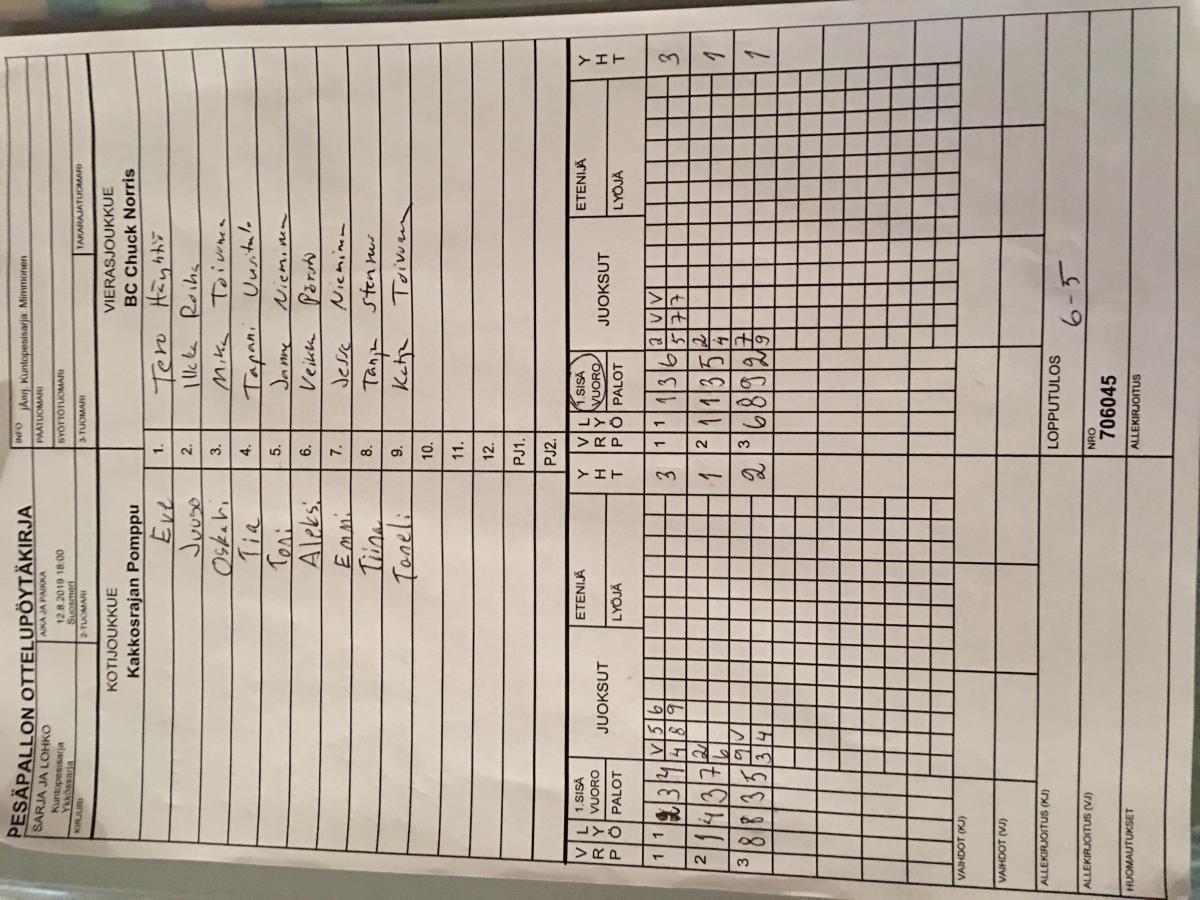 PESÄPALLON OTTELUPÖYTÄKIRJA
SARJA JA LOHKO
Kuntopesisarja
Ykkössarja
AIKA JA PAIKKA
12.8.2019 18:00
Suosmeri
INFO jÄrrj. Kuntopesisarja: Mimmonen
PÄÄTUOMARI
SYÖTTÖTUOMARI
KIRJURI
2-TUOMARI
3-TUOMARI
TAKARAJATUOMARI
KOTIJOUKKUE
Kakkosrajan Pomppu
VIERASJOUKKUE
BC Chuck Norris
Eve 1. Tero Häyhtiö
Juuso 2. Ilkka Roiha
Oskari 3. Mika Toivonen
Tia 4. Tapani Uusitalo
Toni 5. Janne Nieminen
Aleksi 6. Veikko
Emmi 7. Jere Nieminen
Tiina 8. Tanja
Taneli 9. Katja Toivonen
10.
11.
12.
PJ1.
PJ2.
VRP LYÖ 1.SISÄ VUORO PALOT JUOKSUT ETENIJÄ LYÖJÄ YHT VRP LYÖ 1.SISÄ VUORO PALOT JUOKSUT ETENIJÄ LYÖJÄ YHT
1 1 2 3 4 V 5 6 3 1 1 1 3 6 2 V V 3
4 8 9 5 7 7
2 1 4 3 7 2 1 2 1 1 3 5 2 1
6 4
3 8 8 3 5 9 V 2 3 6 8 9 2 7 1
3 4 9
VAIHDOT (KJ)
VAIHDOT (VJ)
ALLEKIRJOITUS (KJ)
LOPPUTULOS 6-5
ALLEKIRJOITUS (VJ)
NRO
706045
HUOMAUTUKSET
ALLEKIRJOITUS